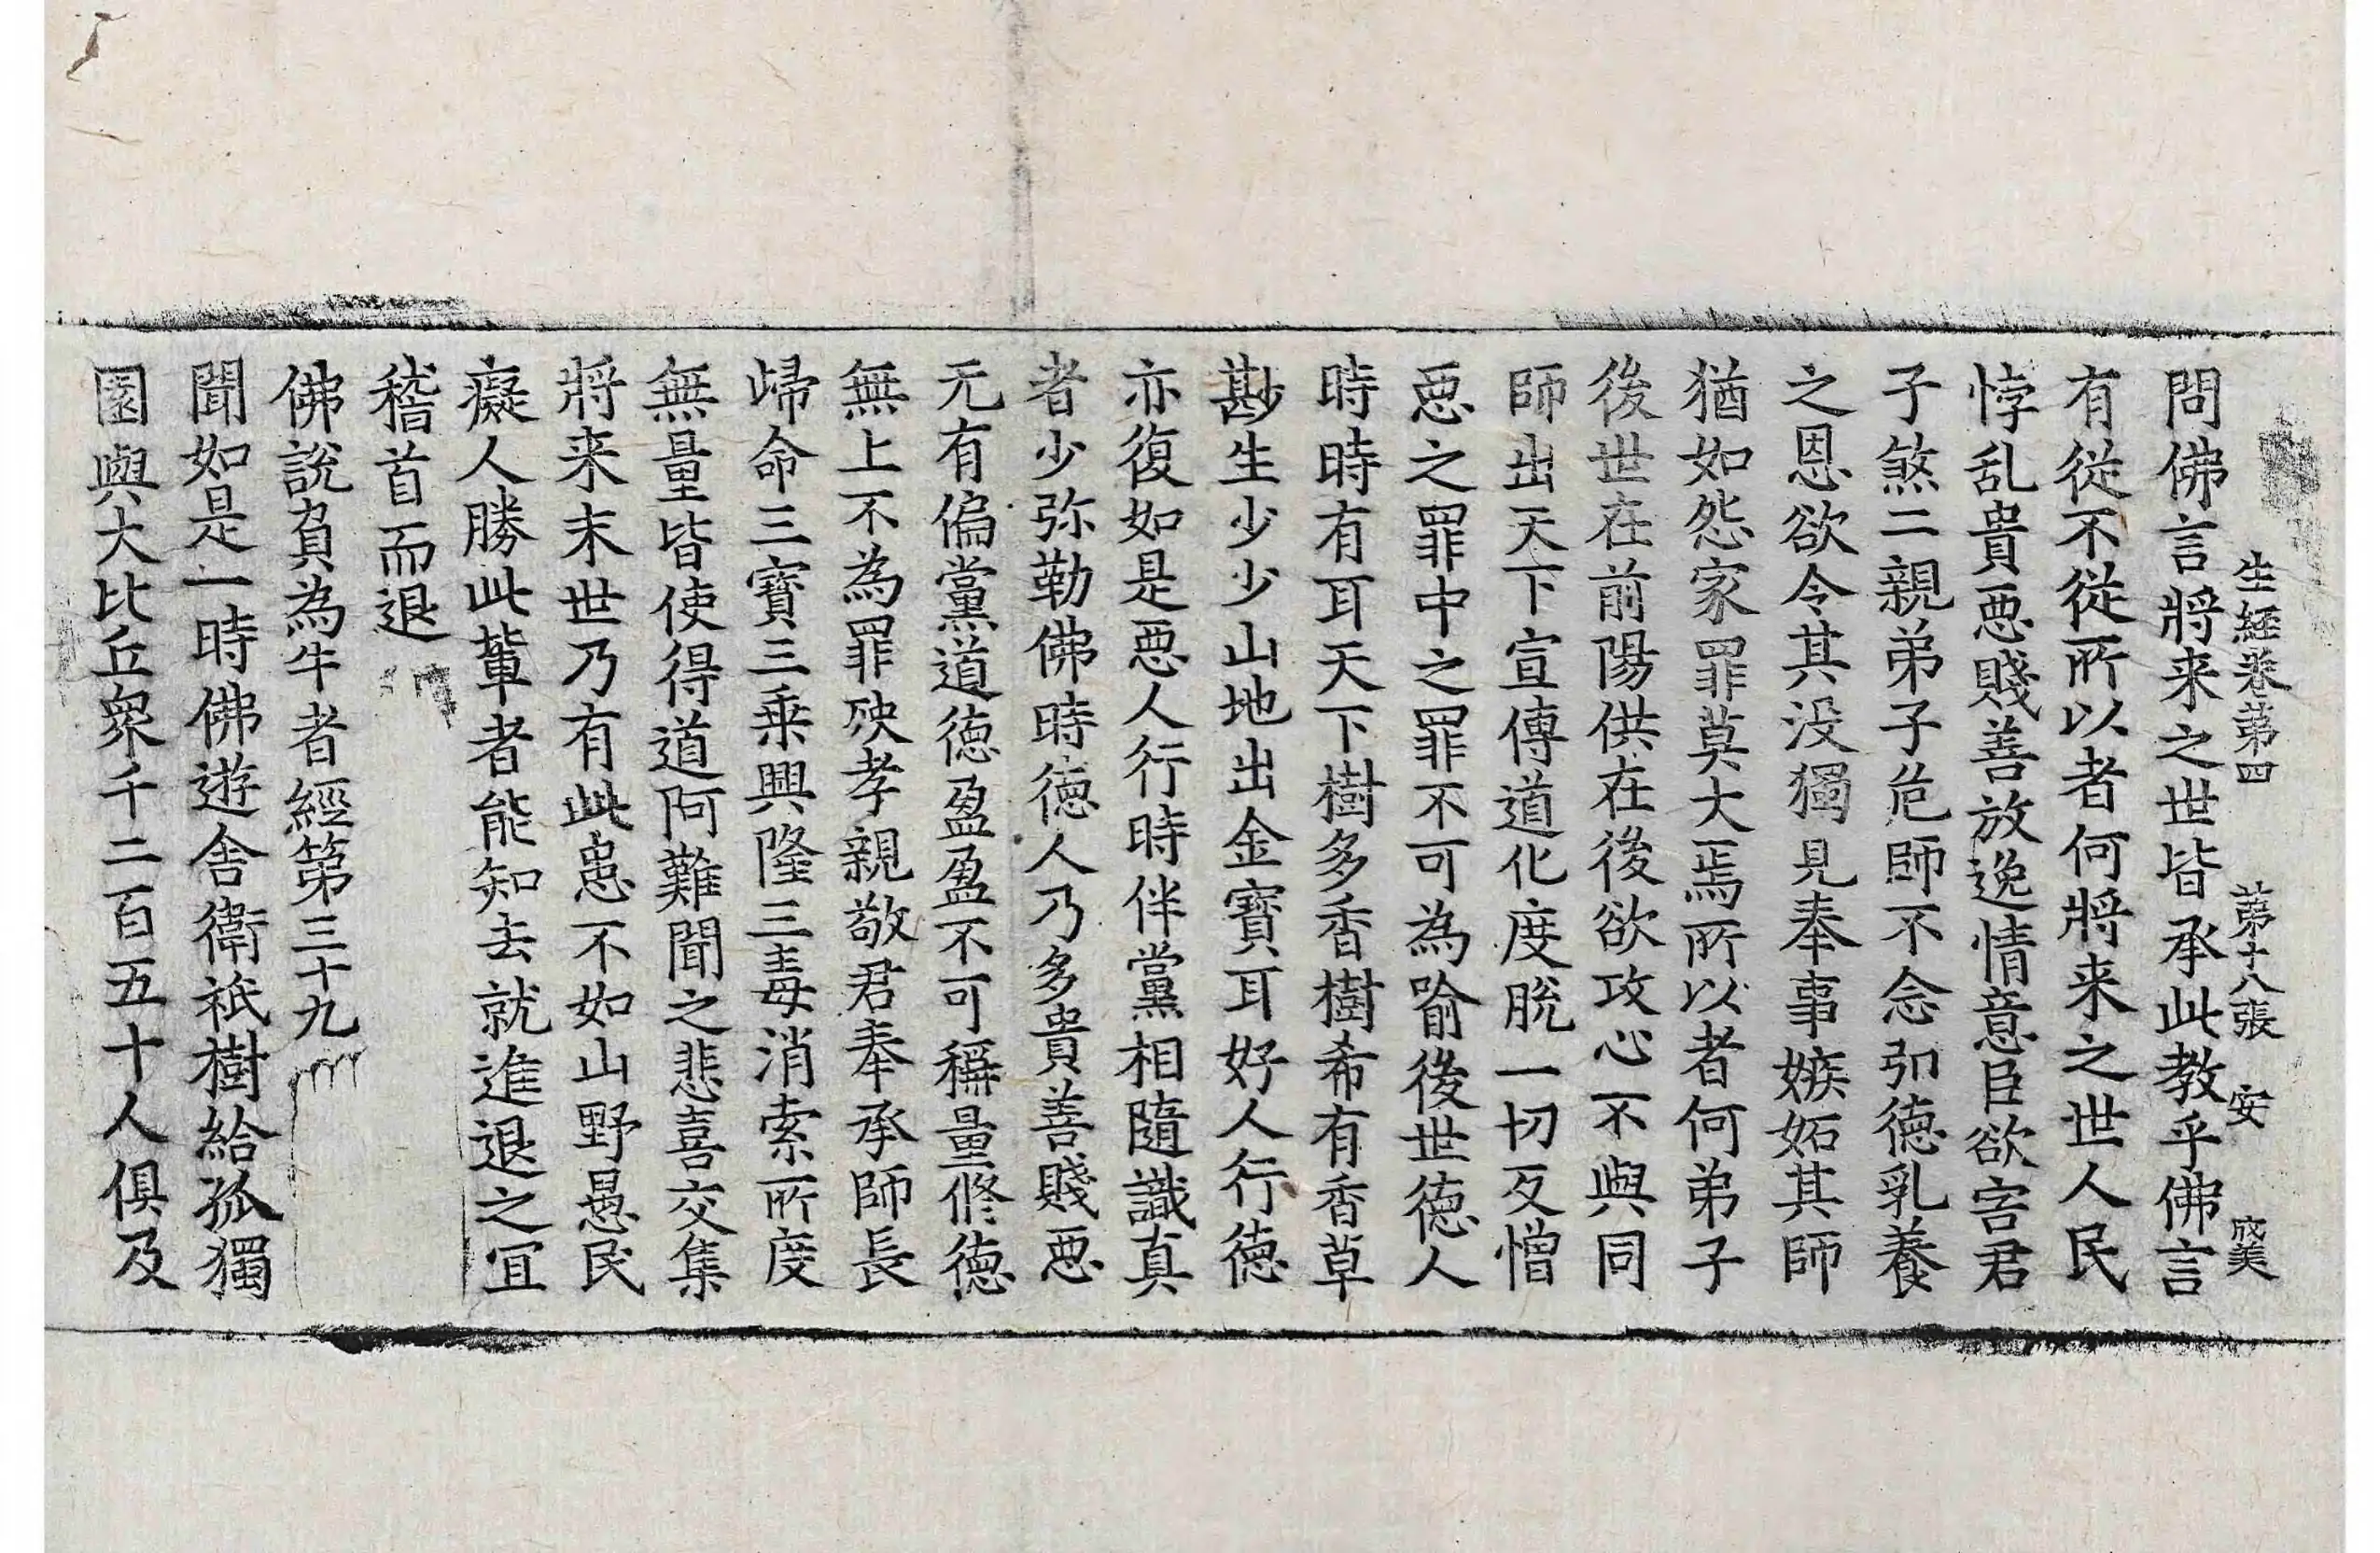 生經卷第四 第十八張 安
問佛言將来之世皆承此教乎佛言
有從不從所以者何將来之世人民
悖乱貴惡賤善放逸情意臣欲害君
子煞二親弟子危師不念卬德乳養
之恩欲令其没獨見奉事嫉妬其師
猶如怨家罪莫大焉所以者何弟子
後世在前陽供在後欲攻心不與同
師出天下宣傳道化度脫一切反憎
惡之罪中之罪不可為喻後世德人
時時有耳天下樹多香樹希有香草
尠生少少山地出金寶耳好人行德
亦復如是惡人行時伴黨相隨識真
者少弥勒佛時德人乃多貴善賤惡
无有偏黨道德盈盈不可稱量修德
無上不為罪殃孝親敬君奉承師長
歸命三寶三乗興隆三毒消索所度
無量皆使得道阿難聞之悲喜交集
將来末世乃有此患不如山野愚民
癡人勝此輩者能知去就進退之宜
稽首而退
佛說負為牛者經第三十九
聞如是一時佛遊舍衛祇樹給孤獨
園與大比丘衆千二百五十人俱及